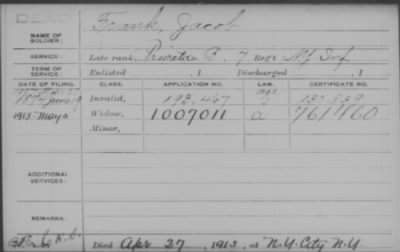 DEAD
NAME OF SOLDIER:
Frank, Jacob
SERVICE: Late rank, Private Co. B, 7 Reg't N.J. Inf.
TERM OF SERVICE: Enlisted , 1 Discharged , 1
DATE OF FILING. CLASS. APPLICATION NO. LAW. CERTIFICATE NO.
Invalid, 193.467
1913-May 2 Widow, 1007011 a 761460
Minor,
ADDITIONAL SERVICES:
REMARKS:
Died Apr 27, 1913, at N.Y. City N.Y